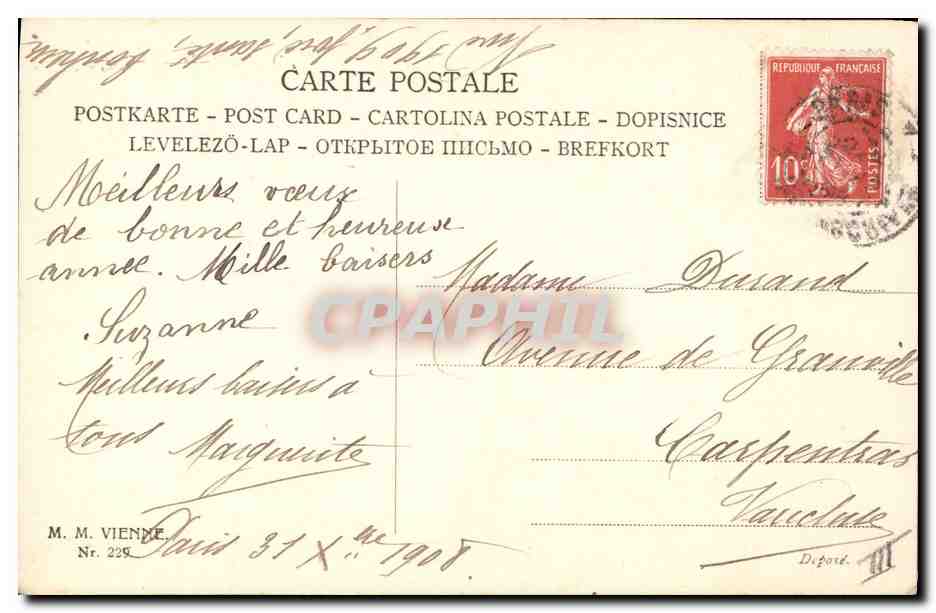 An 1909, joie, santé, bonheur
CARTE POSTALE
POSTKARTE – POST CARD – CARTOLINA POSTALE – DOPISNICE
LEVELEZÖ-LAP – ОТКРЫТОЕ ПИСЬМО – BREFKORT
REPUBLIQUE FRANÇAISE
10c POSTES
Meilleurs vœux
de bonne et heureuse
année. Mille baisers
Suzanne
Meilleurs baisers à
tous Marguerite
Paris 31 Xbre 1908
Madame Durand
Avenue de Granville
Carpentras
Vaucluse
CPAPHIL
M. M. VIENNE.
Nr. 229
Déposé.
III